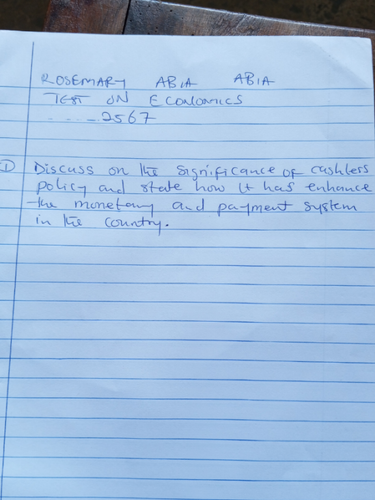 ROSEMARY ABIA ABIA
TEST ON ECONOMICS
....2567
① Discuss on the significance of cashless
policy and state how it has enhance
the monetary and payment system
in the country.